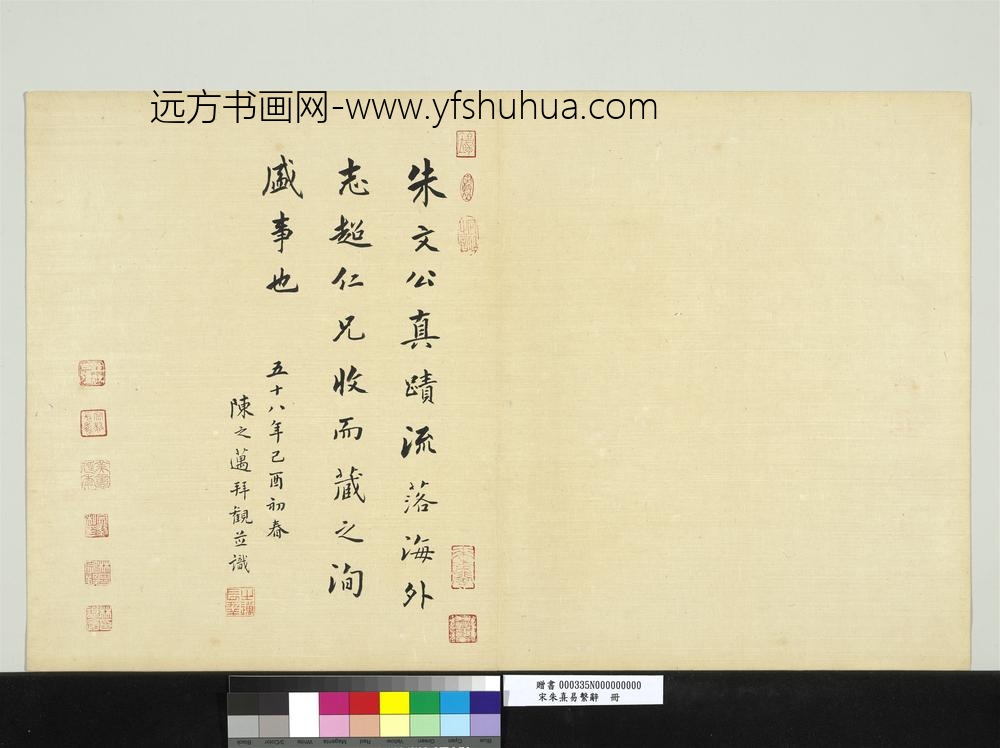 远方书画网-www.yfshuhua.com
朱文公真蹟流落海外
志超仁兄收而藏之洵
盛事也
五十八年己酉初春
陳之邁拜觀並識
贈書 000335N000000000
宋朱熹易繫辭 冊
Black
3/Color
White
Magenta
Red
Yellow
Green
Cyan
Blue